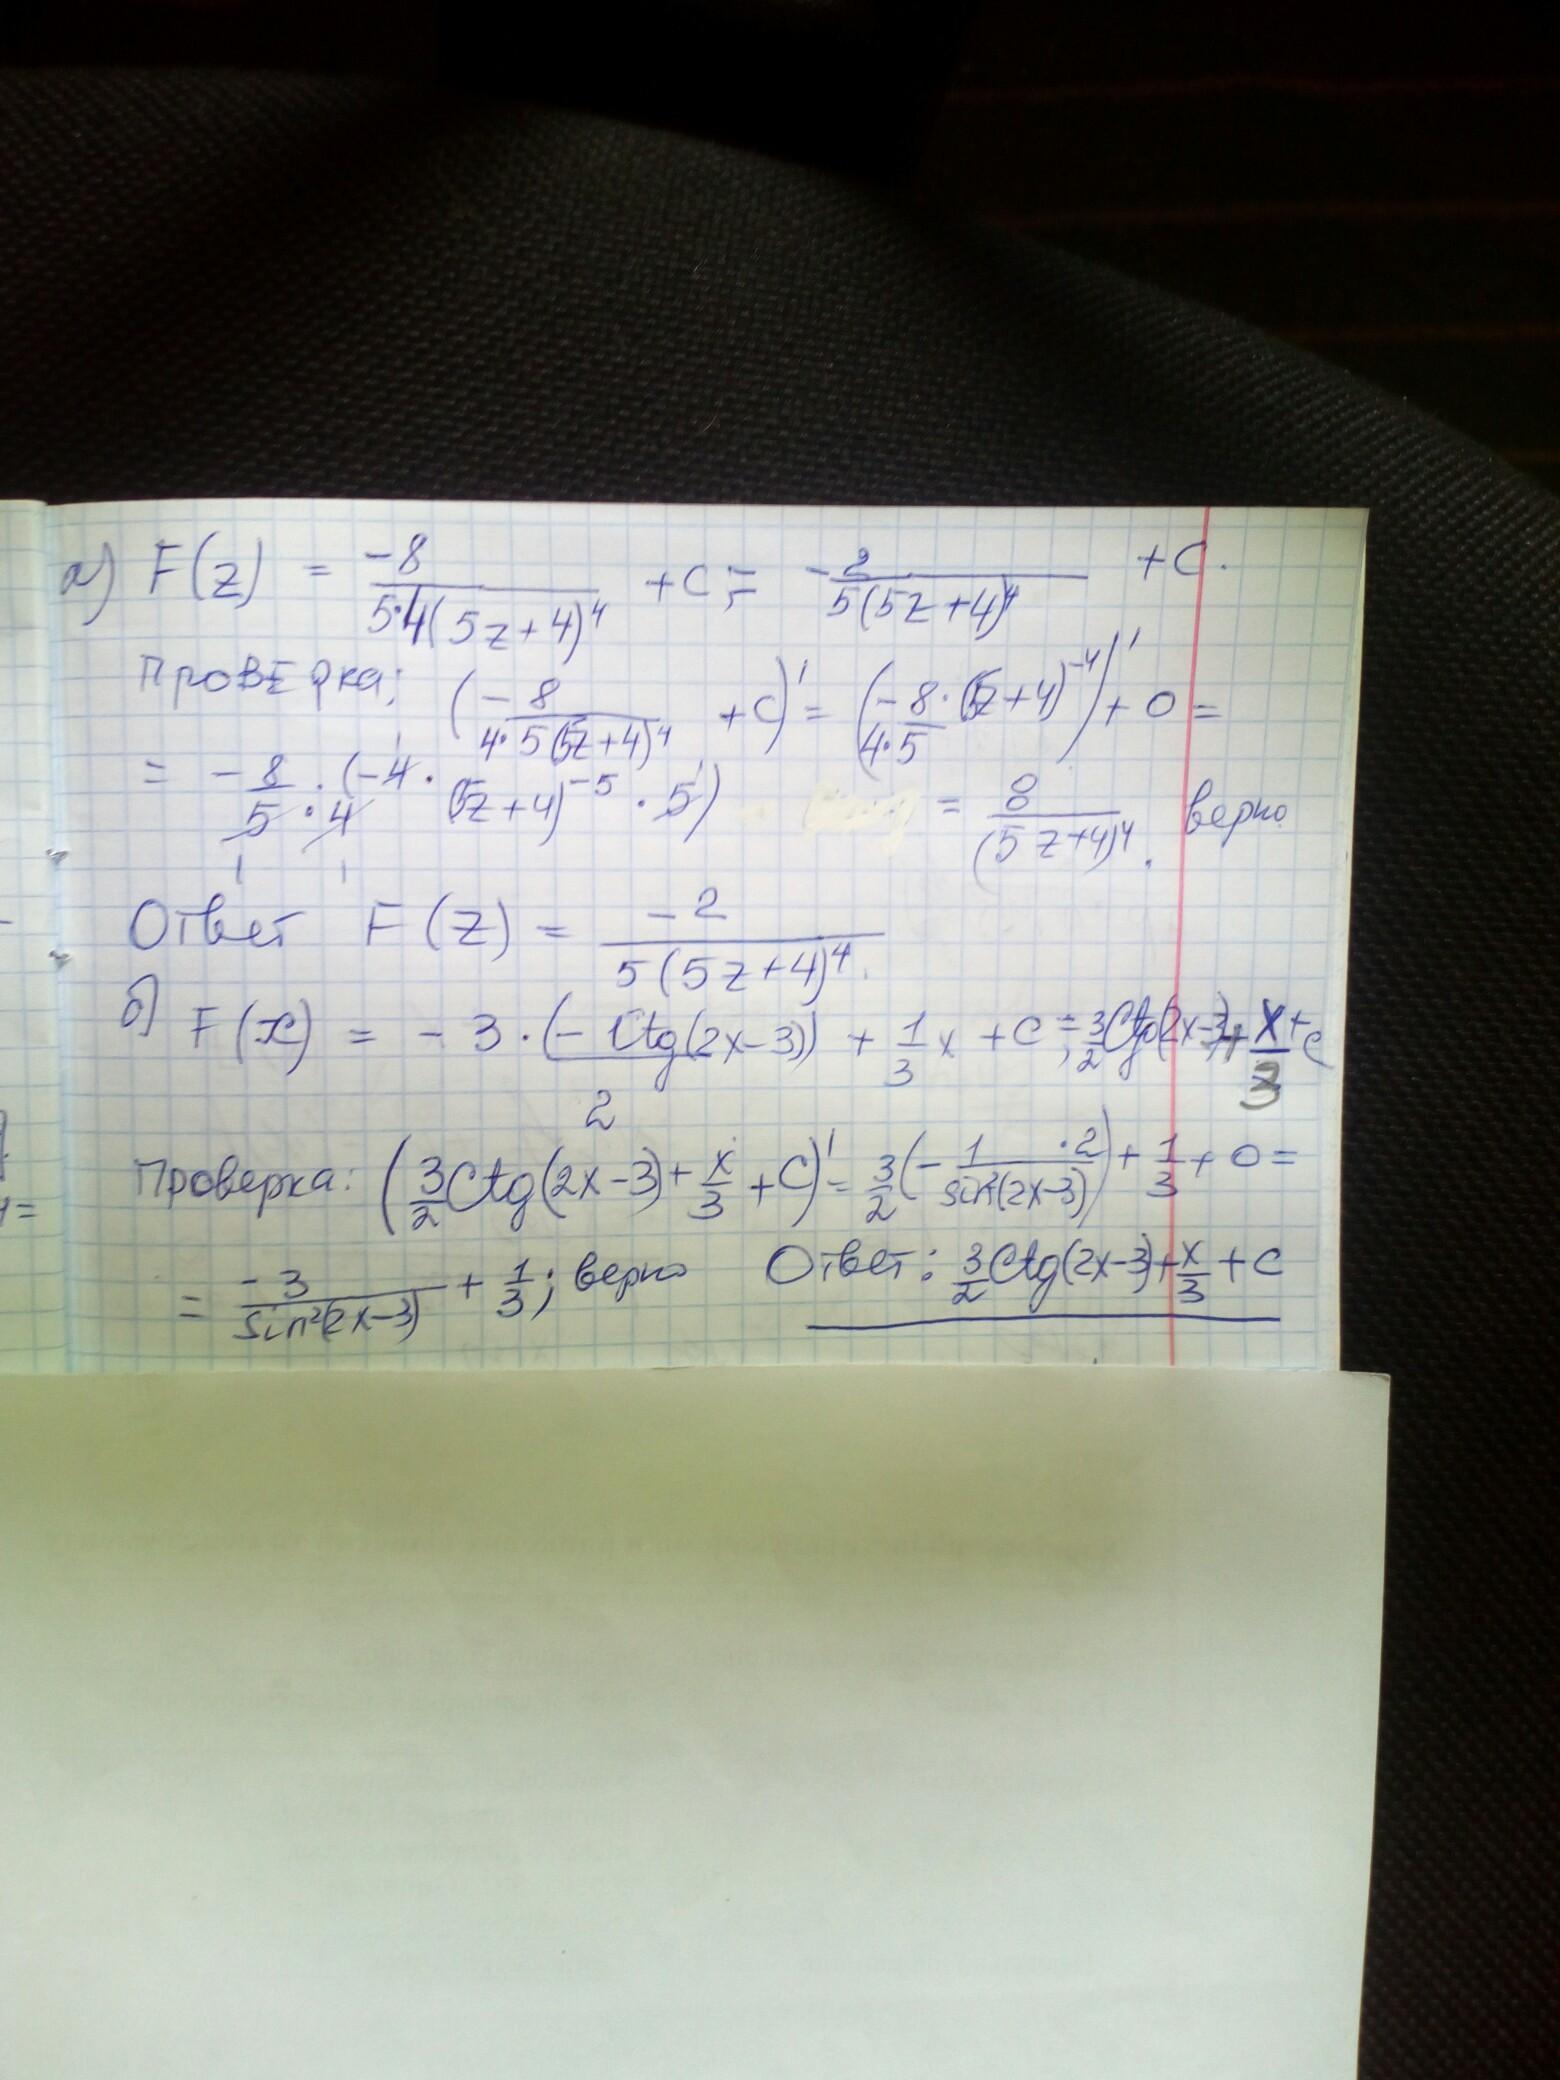 а) F(z) = -8/(5·4(5z+4)⁴) + C; = -2/(5(5z+4)⁴) + C.
Проверка; (-8/(4·5(5z+4)⁴) + C)' = (-8/(4·5)·(5z+4)⁻⁴)' + 0 =
= -8/(5·4)·(-4·(5z+4)⁻⁵·5) = 8/(5z+4)⁴. верно
Ответ F(z) = -2/(5(5z+4)⁴).
б) F(x) = -3·(-1Ctg(2x-3))/2 + 1/3 x + C; = 3/2 Ctg(2x-3) + x/3 + C
Проверка: (3/2 Ctg(2x-3) + x/3 + C)' = 3/2(-1·2/sin²(2x-3)) + 1/3 + 0 =
= -3/sin²(2x-3) + 1/3; верно Ответ: 3/2 Ctg(2x-3) + x/3 + C